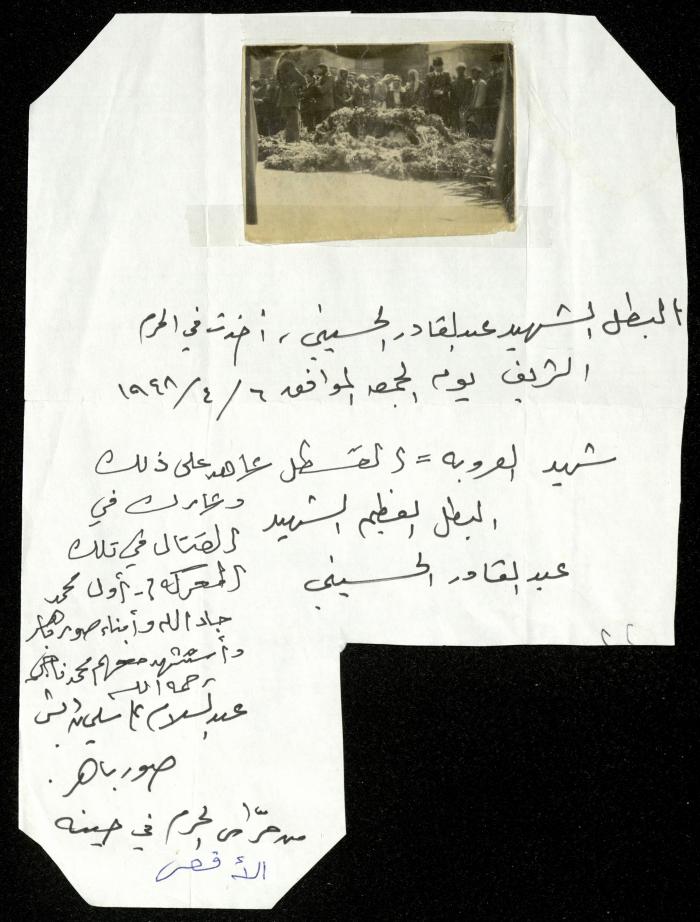 البطل الشهيد عبدالقادر الحسيني، أخذت في الحرم
الشريف يوم الجمعه الموافق ٦/٤/١٩٤٨
شهيد العروبه = القسطل شاهد على ذلك
البطل العظيم الشهيد
عبدالقادر الحسيني
وشارك في
القتال في تلك
المعركة أول محمد
جاد الله وأبناء صور باهر
وأستشهد معهم محمد
رحمه الله
عبدالسلام
صور باهر.
من حرّاس الحرم في حينه
الأقصى